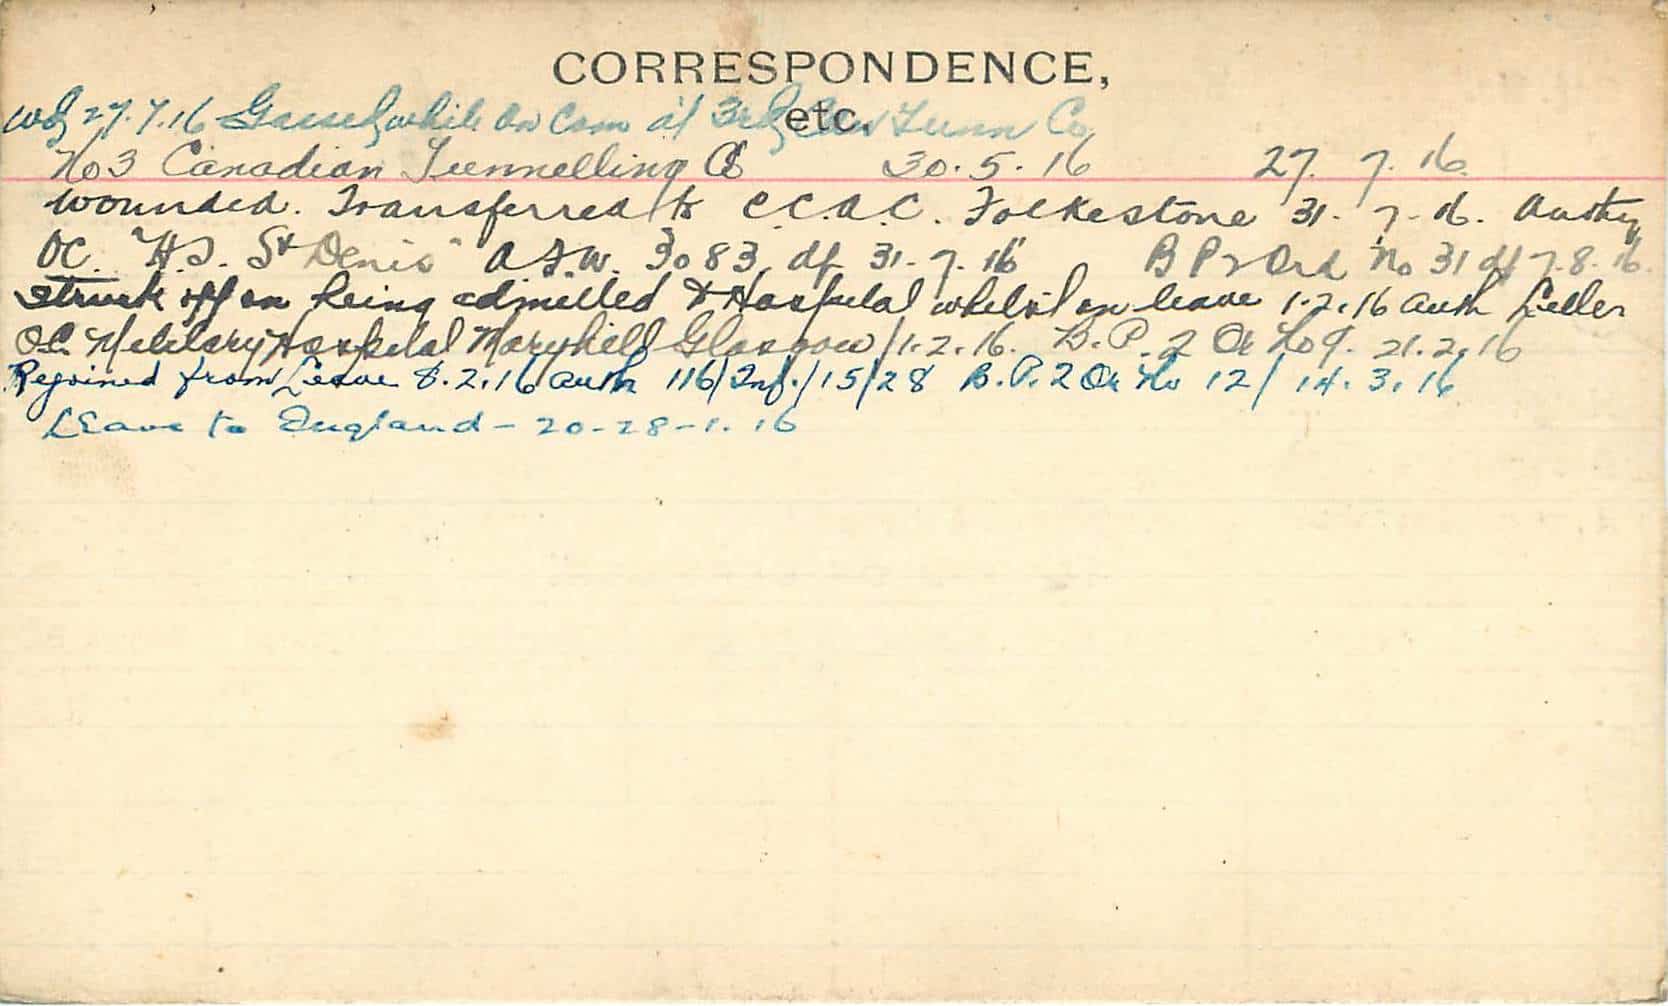 CORRESPONDENCE,
etc.
Wd 27.7.16 Gassed while on Com at 3rd Can Tunn Co
No 3 Canadian Tunnelling Co 30.5.16 27.7.16
wounded. Transferred to C.C.A.C. Folkestone 31-7-16. Authy
OC. "H.S. St Denis" A.F.W. 3083 df 31-7-16 B P 2 Ord No 31 df 7.8.16.
Struck off on being admitted to Hospital whilst on leave 1.2.16 auth Letter
O.C. Military Hospital Maryhill Glasgow /1.2.16. B.P. 2 Or No 9. 21.2.16
Rejoined from Leave 8.2.16 auth 116/Inf./15/28 B.P. 2 Or No 12/ 14.3.16
Leave to England - 20-28-1.16